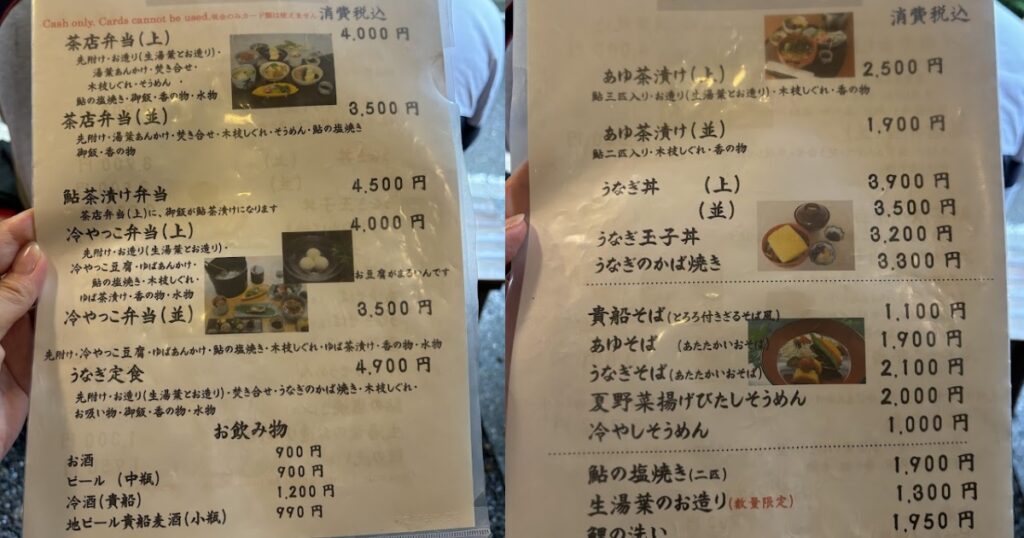 Cash only. Cards cannot be used.現金のみカード類は使えません 消費税込
茶店弁当(上) 4,000 円
先附け・お造り(生湯葉とお造り)・
湯葉あんかけ・焚き合せ・
木枝しぐれ・そうめん・
鮎の塩焼き・御飯・香の物・水物
茶店弁当(並) 3,500 円
先附け・湯葉あんかけ・焚き合せ・木枝しぐれ・そうめん・鮎の塩焼き
御飯・香の物
鮎茶漬け弁当 4,500 円
茶店弁当(上)に、御飯が鮎茶漬けになります
冷やっこ弁当(上) 4,000 円
先附け・お造り(生湯葉とお造り)・
冷やっこ豆腐・ゆばあんかけ・
鮎の塩焼き・木枝しぐれ・
ゆば茶漬け・香の物・水物
お豆腐がまるいんです
冷やっこ弁当(並) 3,500 円
先附け・冷やっこ豆腐・ゆばあんかけ・鮎の塩焼き・木枝しぐれ・ゆば茶漬け・香の物・水物
うなぎ定食 4,900 円
先附け・お造り(生湯葉とお造り)・焚き合せ・うなぎのかば焼き・木枝しぐれ・
お吸い物・御飯・香の物・水物
お飲み物
お酒 900 円
ビール (中瓶) 900 円
冷酒(貴船) 1,200 円
地ビール貴船麦酒(小瓶) 990 円
消費税込
あゆ茶漬け(上) 2,500 円
鮎三匹入り・お造り(生湯葉とお造り)・木枝しぐれ・香の物
あゆ茶漬け(並) 1,900 円
鮎二匹入り・木枝しぐれ・香の物
うなぎ丼 (上) 3,900 円
(並) 3,500 円
うなぎ玉子丼 3,200 円
うなぎのかば焼き 3,300 円
貴船そば(とろろ付きざるそば風) 1,100 円
あゆそば (あたたかいおそば) 1,900 円
うなぎそば(あたたかいおそば) 2,100 円
夏野菜揚げびたしそうめん 2,000 円
冷やしそうめん 1,000 円
鮎の塩焼き(二匹) 1,900 円
生湯葉のお造り(数量限定) 1,300 円
鯉の洗い 1,950 円